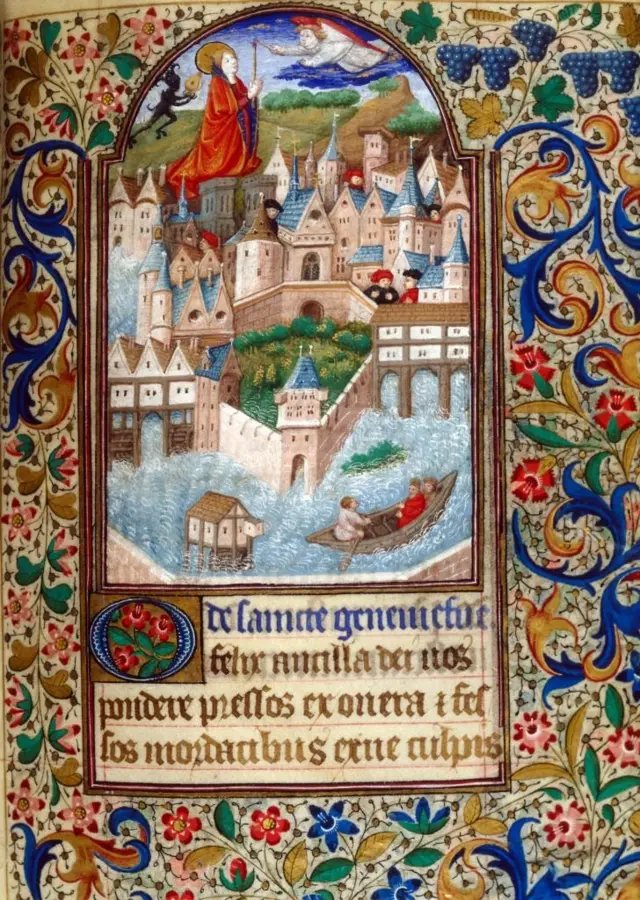 de saincte geneuiefue
O felix ancilla dei nos
pondere pressos exonera ⁊ fes
sos mordacibus exue culpis